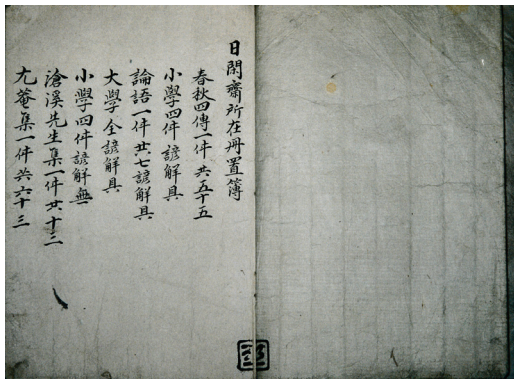 日閑齋所在冊置簿
春秋四傳一件共五十五
小學四件諺解具
論語一件共七諺解具
大學全諺解具
小學四件諺解無
滄溪先生集一件共十二
尤菴集一件共六十三